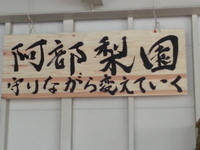 阿部梨園
守りながら変えていく